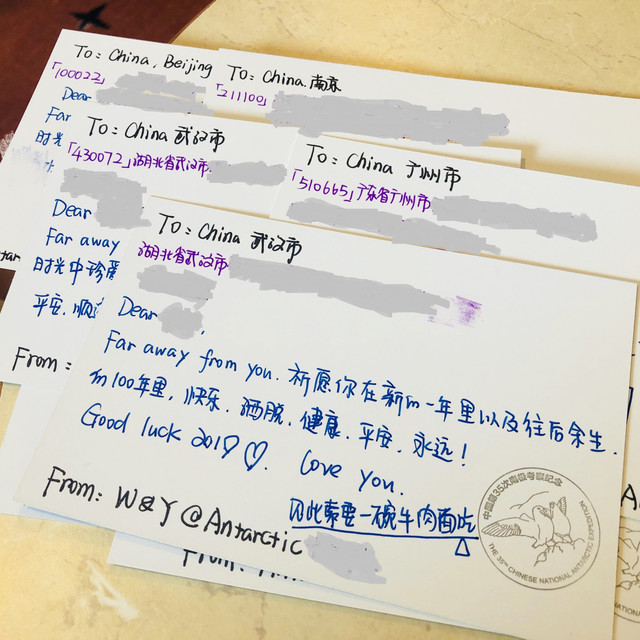 To: China, Beijing
「100022」
Dear
Far
时光
To: China 南京
「211100」
To: China 武汉市
「430072」湖北省武汉市
Dear
Far away
时光中珍爱
平安. 顺
From:
To: China 广州市
「510665」广东省广州市
To: China 武汉市
湖北省武汉市
Dear ,
Far away from you. 祈愿你在新的一年里以及往后余生.
的100年里, 快乐. 洒脱. 健康. 平安. 永远!
Good luck 2019♡. Love You.
From: W&Y @Antarctic
因此索要一碗牛肉面吃
中国第35次南极考察纪念
THE 35TH CHINESE NATIONAL ANTARCTIC EXPEDITION